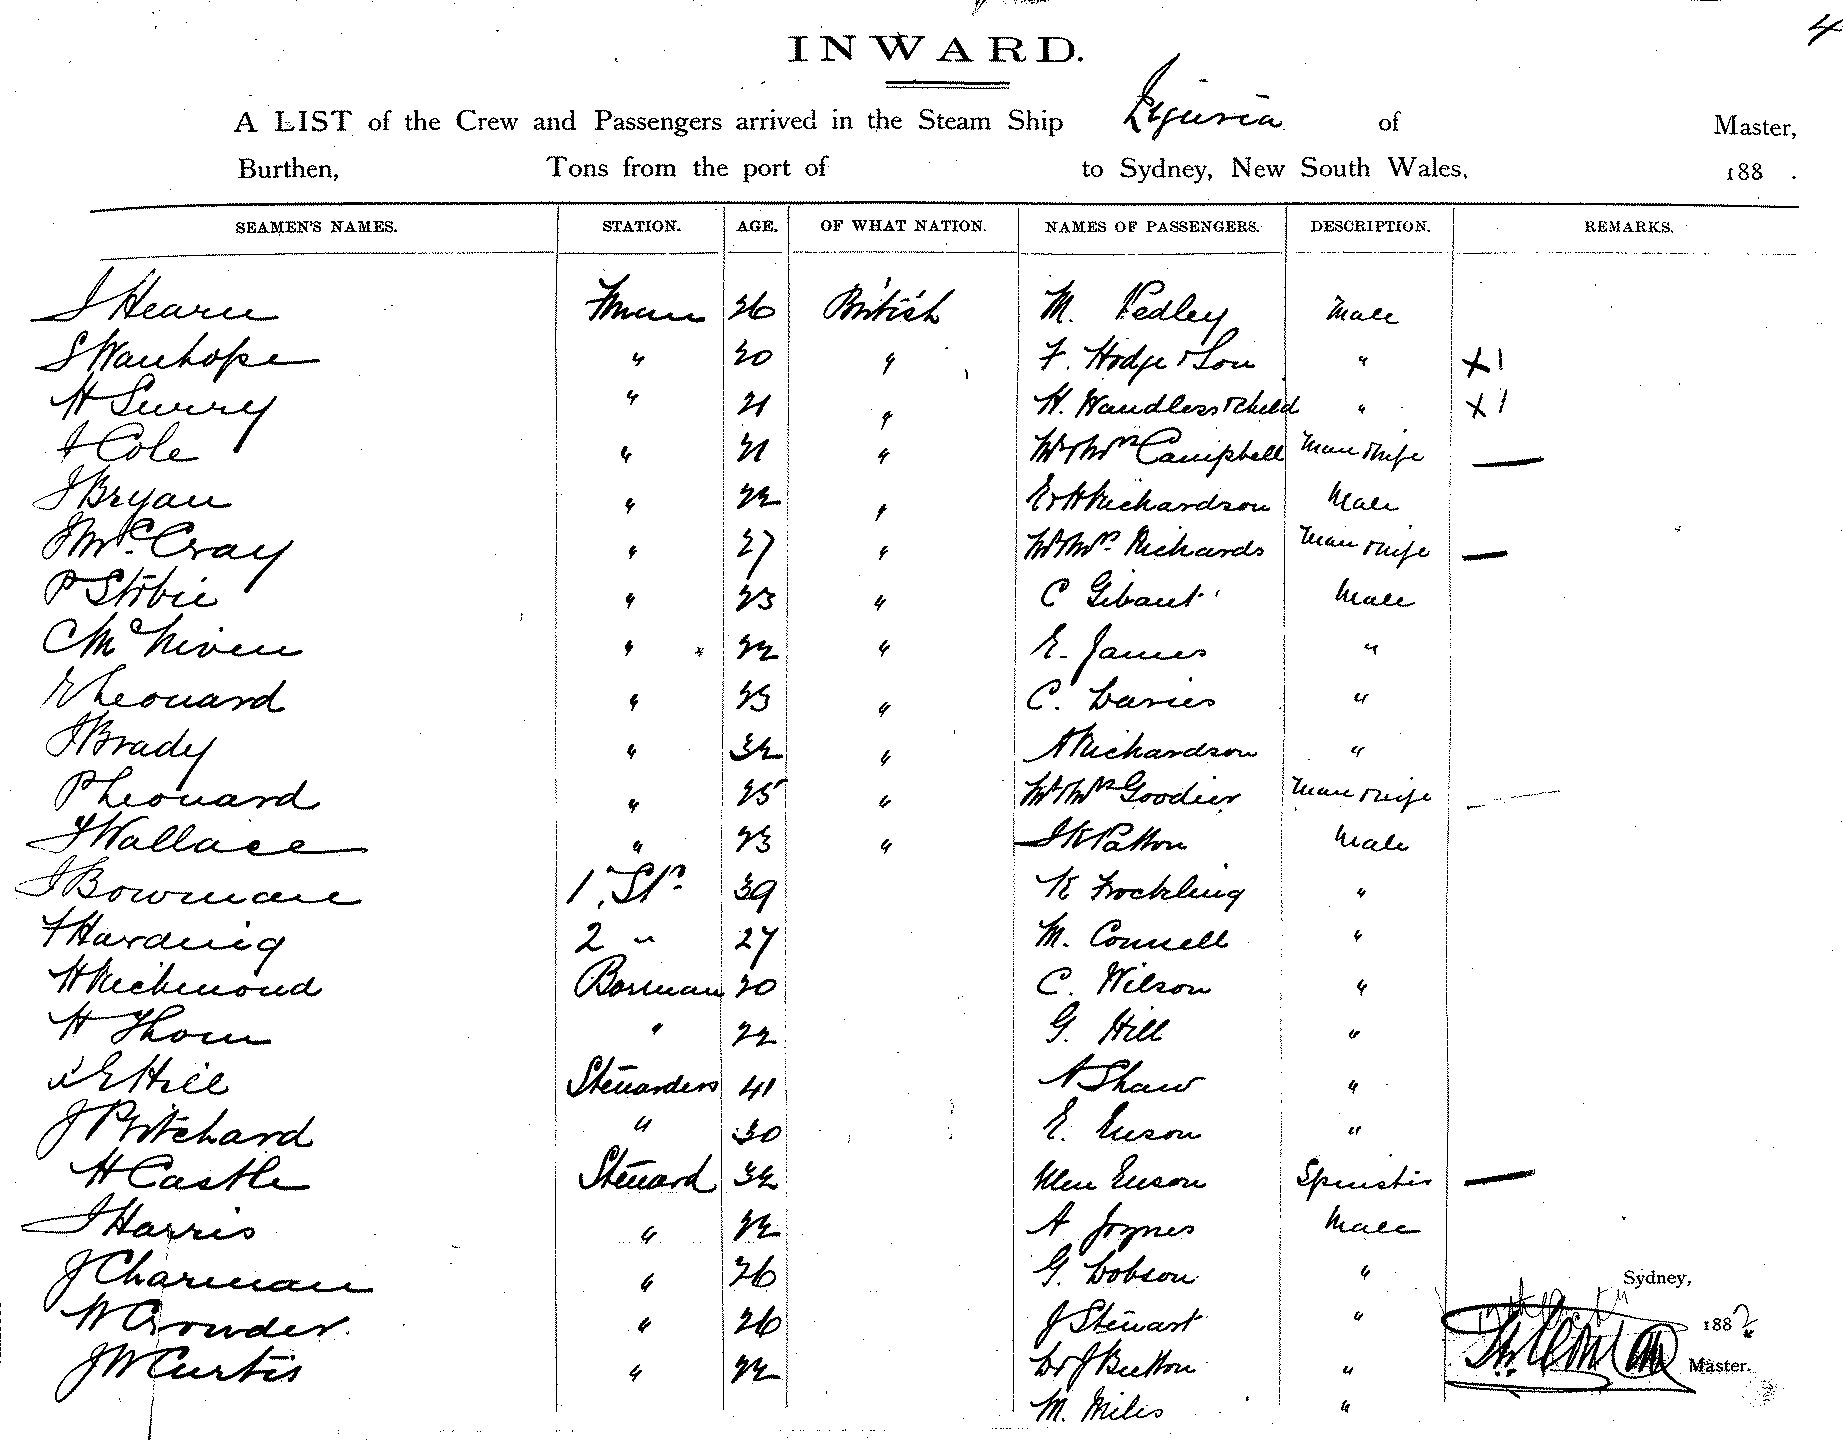 4
INWARD.
A LIST of the Crew and Passengers arrived in the Steam Ship Liguria of Master,
Burthen, Tons from the port of to Sydney, New South Wales, 188 .
SEAMEN'S NAMES. STATION. AGE. OF WHAT NATION. NAMES OF PASSENGERS. DESCRIPTION. REMARKS.
J Hearn Fman 26 British M. Pedley Male
S Wauhope " 20 " F. Hodge & Son " X1
H Surrey " 21 " H. Wandless & Child " X1
J Cole " 21 " Mr & Mrs Campbell Man & Wife —
J Bryan " 22 " E & H Richardson Male
J McCray " 27 " Mr & Mrs Richards Man & Wife —
P Stobie " 23 " C Gibaut Male
C McNiven " 22 " E. James "
E Leonard " 23 " C. Davies "
J Brady " 32 " A Richardson "
P Leonard " 25 " Mr & Mrs Goodier Man & Wife —
J Wallace " 23 " J K Patton Male
J Bowman 1. Str 39 K Frockling "
F Harding 2 " 27 M. Connell "
H Richmond Bosman 20 C. Wilson "
H Thom " 22 G. Hill "
E Hill Stewardess 41 A Shaw "
J Pritchard " 30 E. Euson "
H Castle Steward 32 Euson Spinster —
J Harris " 22 A Joynes Male
J Charman " 26 G. Dobson "
W Crowder. " 26 J Stewart "
J W Curtis " 22 Dr J Button "
M. Miles "
Sydney,
1882
Master.